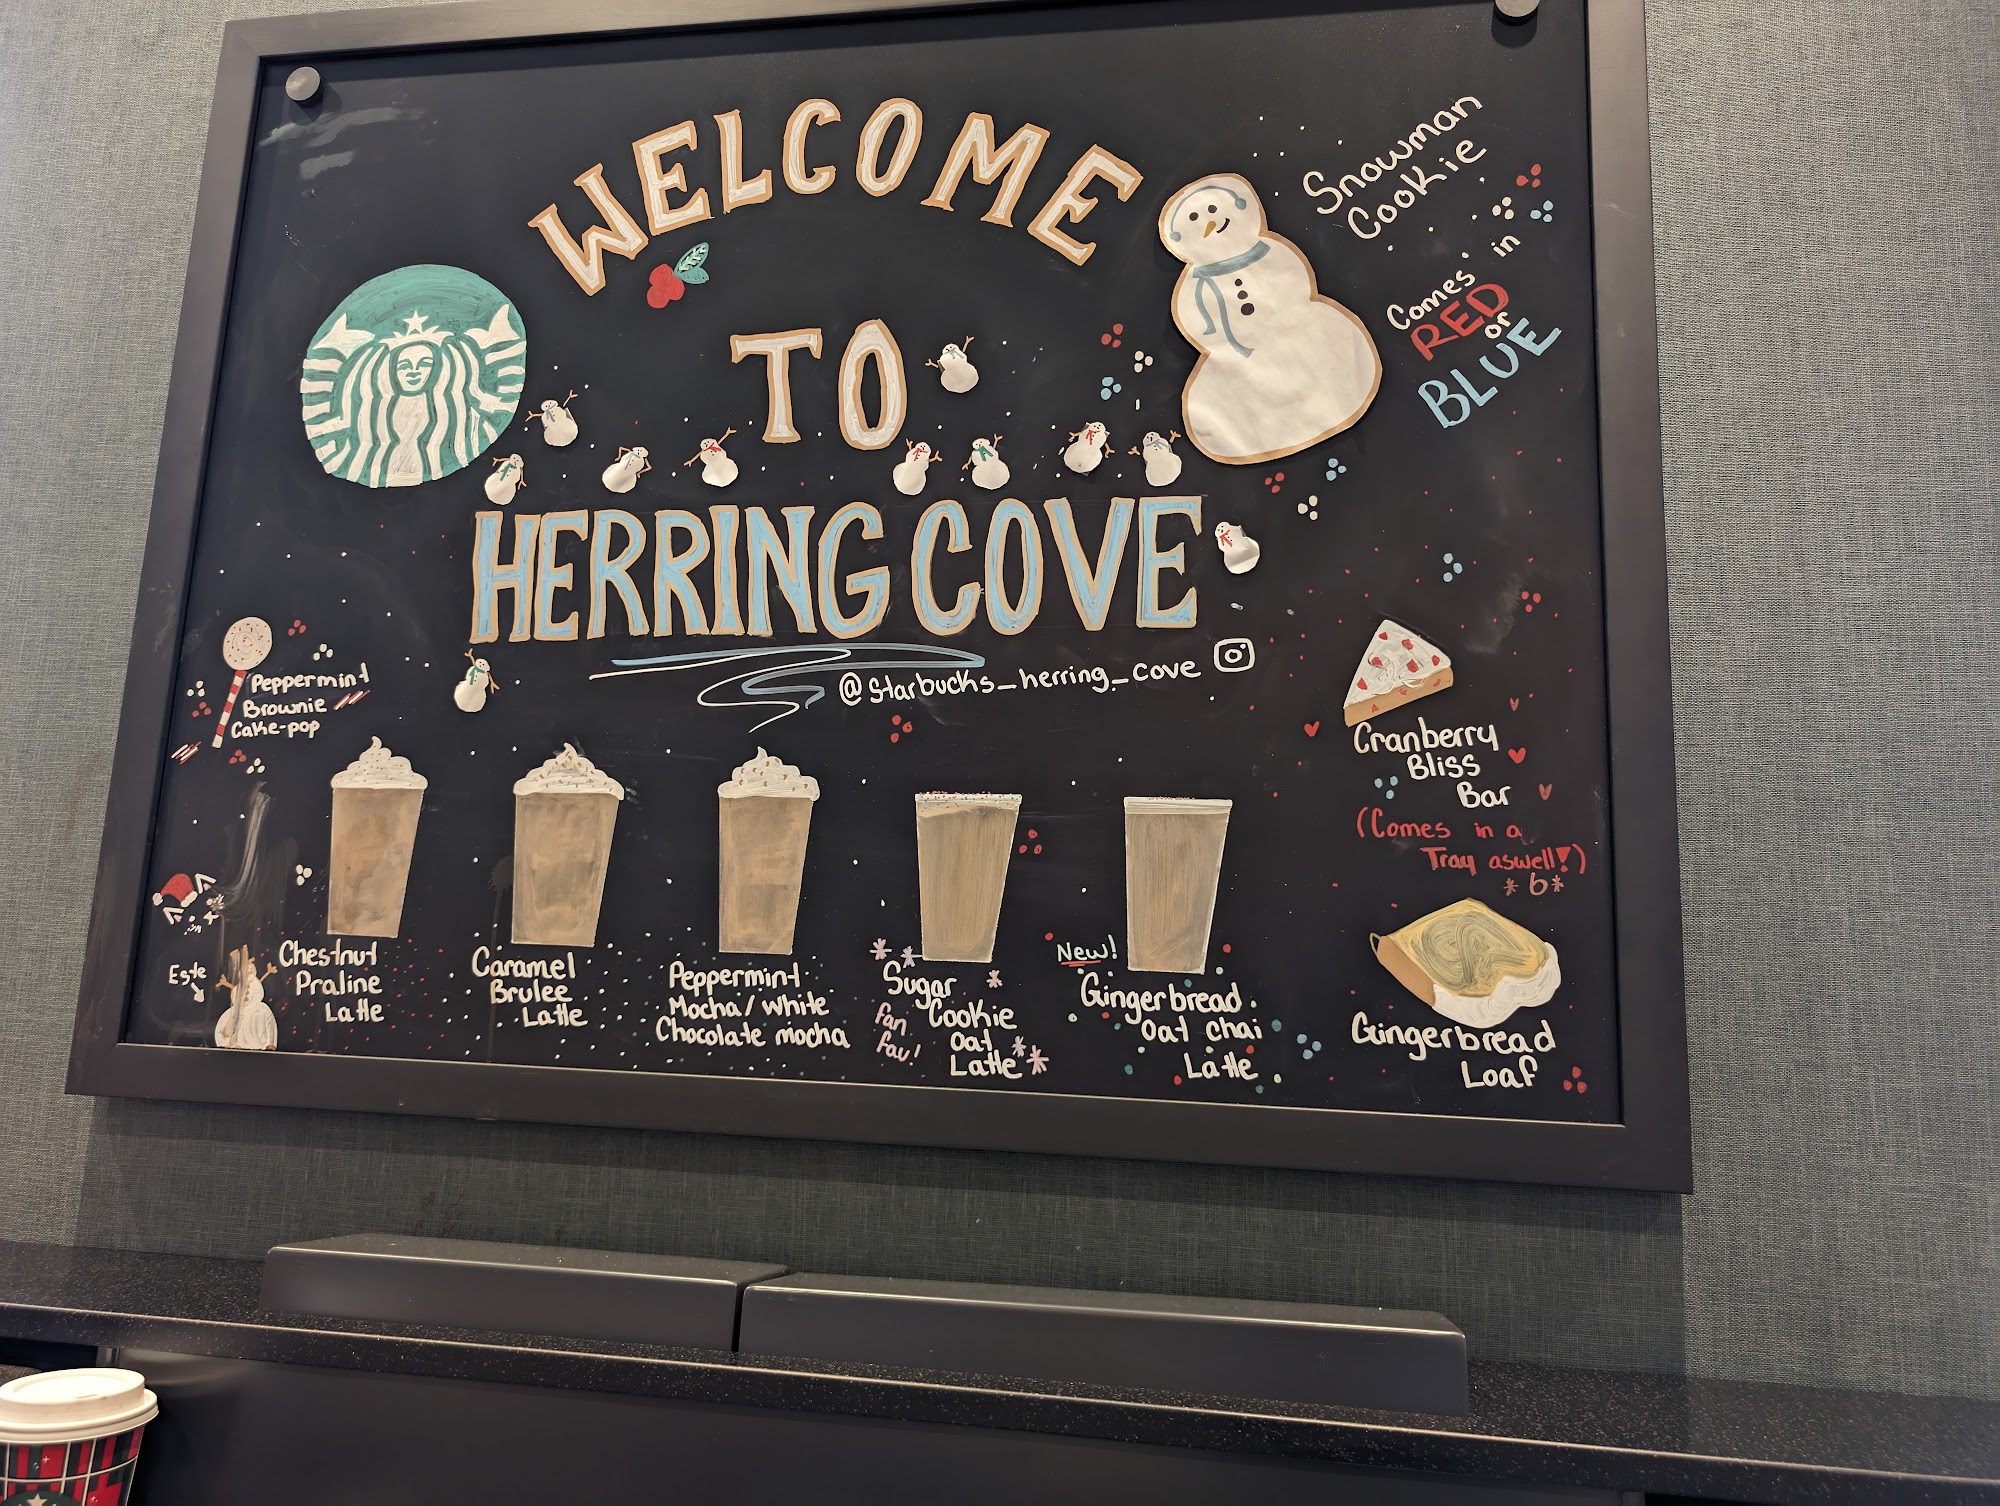 WELCOME
TO
HERRING COVE
@Starbucks_herring_cove
Snowman
Cookie
Comes in
RED
or
BLUE
Peppermint
Brownie
Cake-pop
Cranberry
Bliss
Bar
(Comes in a
Tray aswell!)
*6*
Este
Chestnut
Praline
Latte
Caramel
Brulee
Latte
Peppermint
Mocha/White
Chocolate mocha
Sugar
Cookie
Oat
Latte
fan
fav!
New!
Gingerbread
Oat chai
Latte
Gingerbread
Loaf